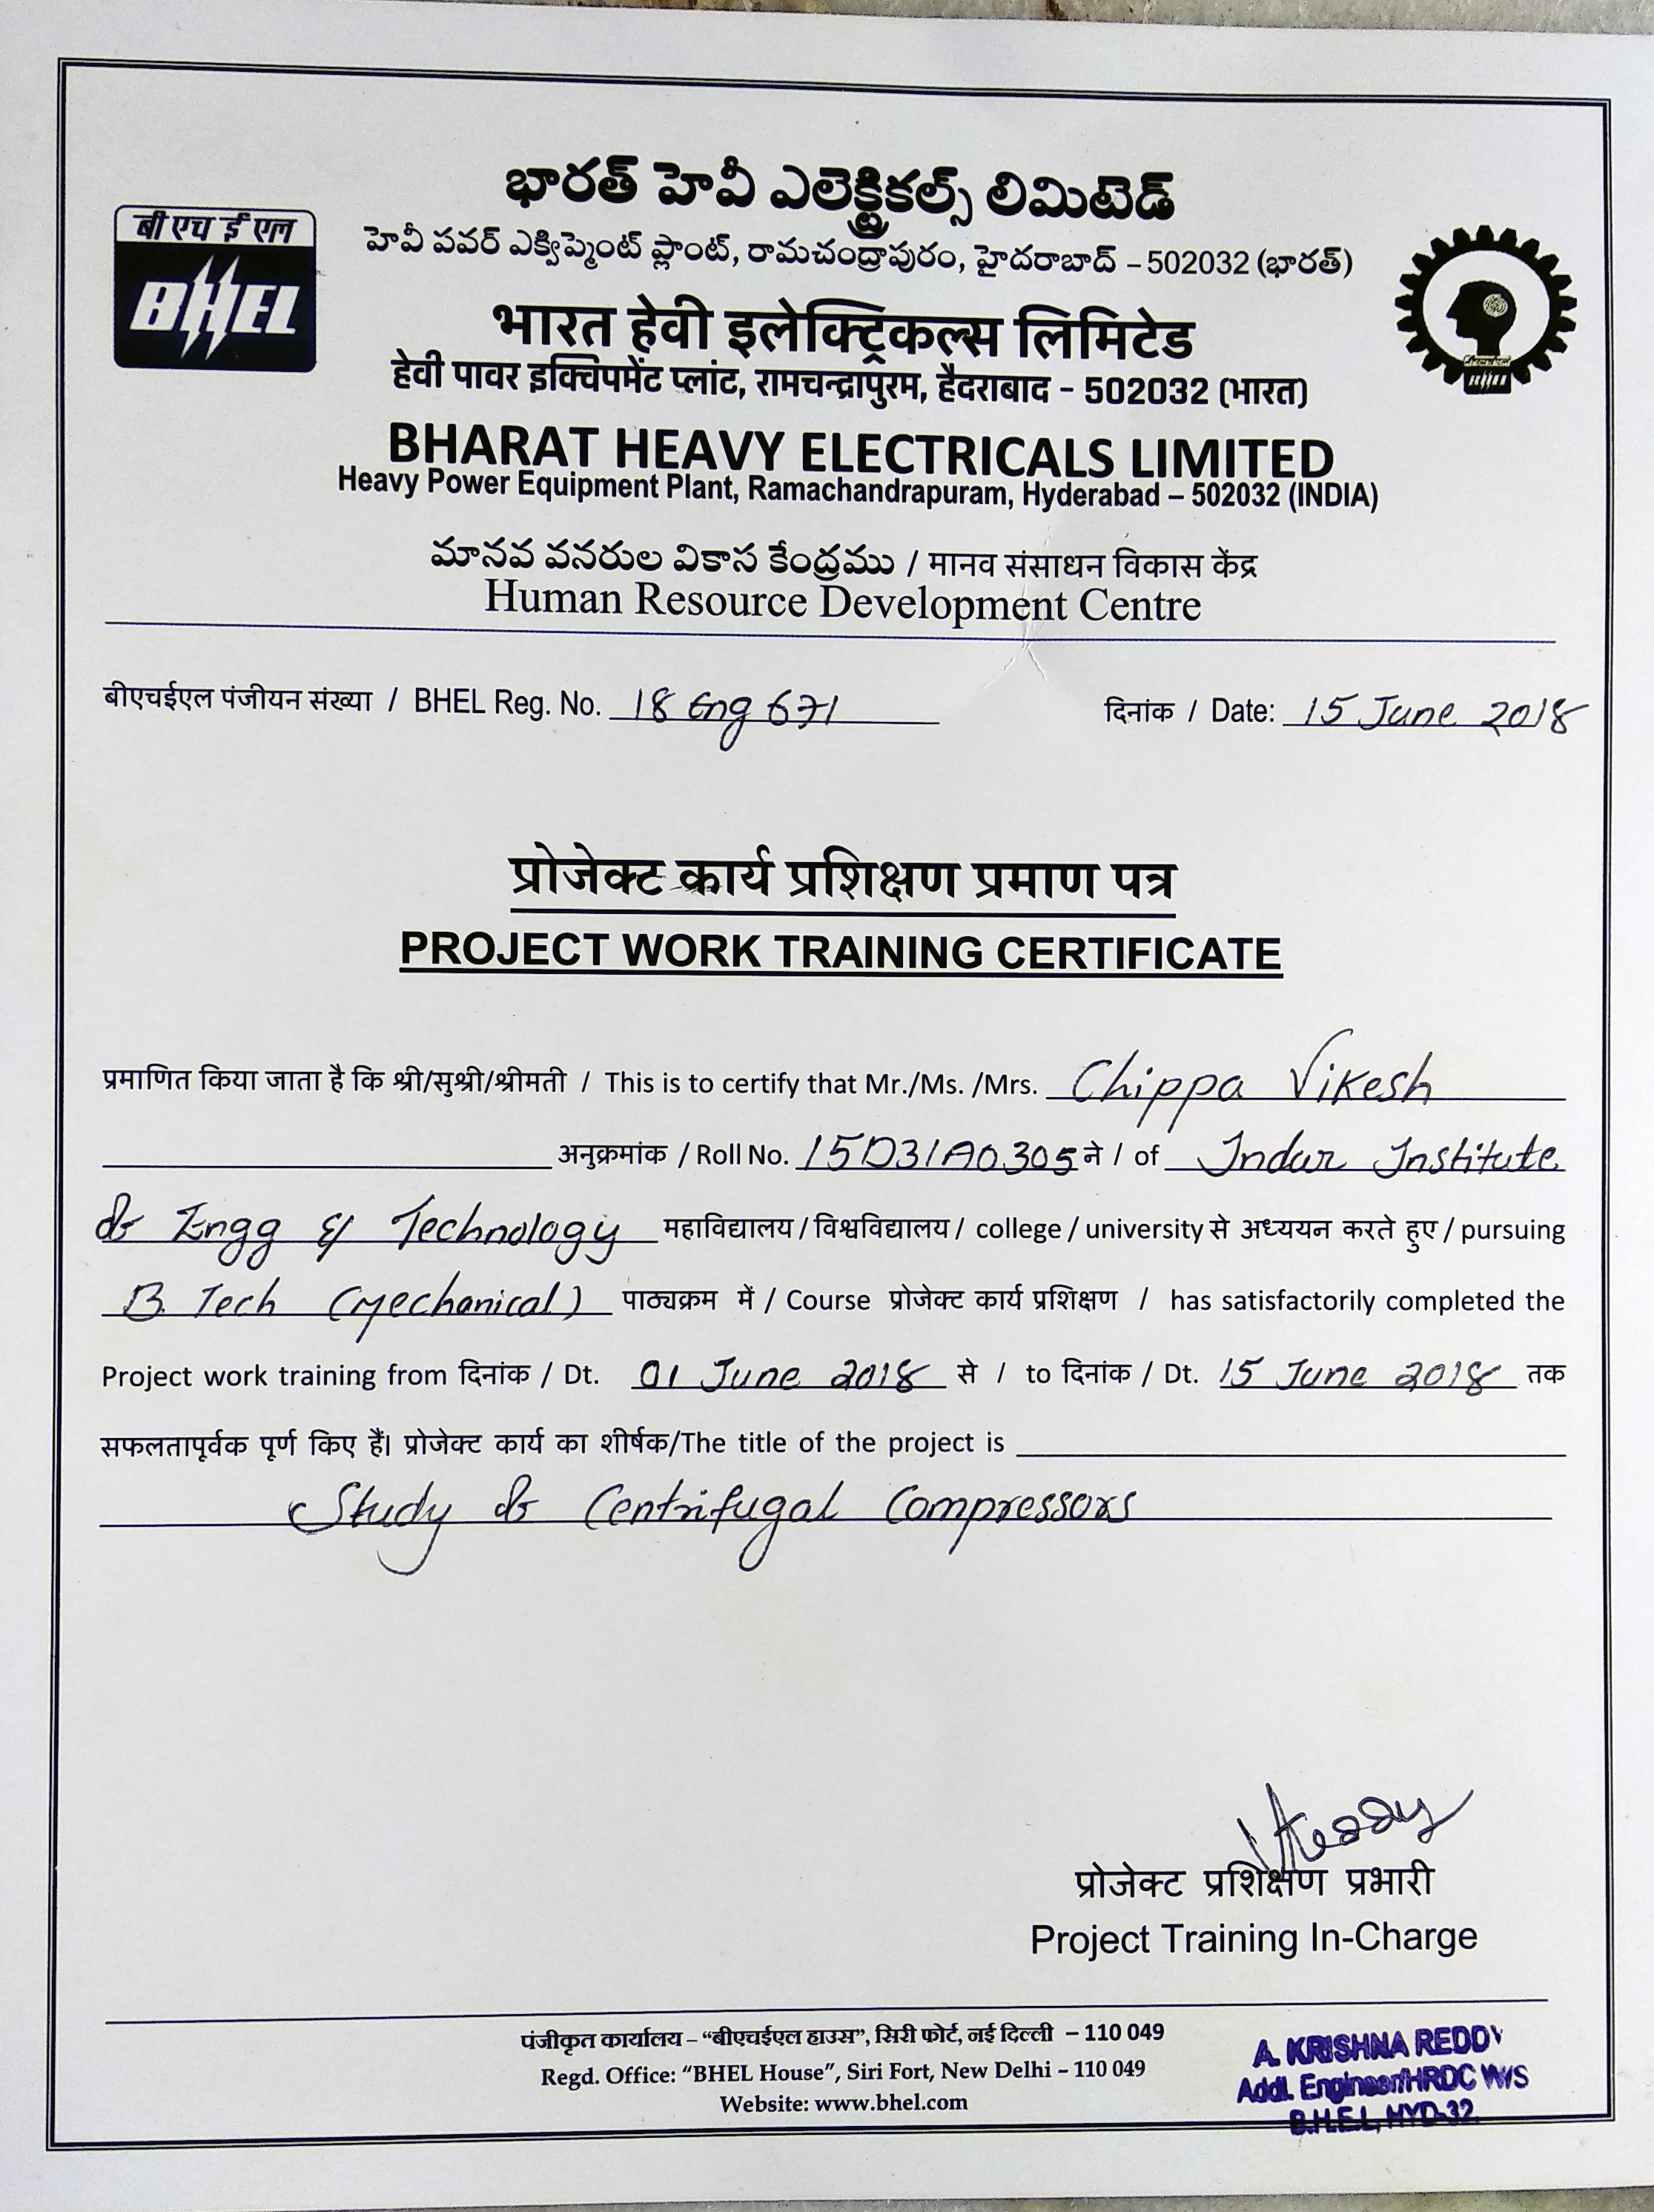 భారత్ హెవీ ఎలెక్ట్రికల్స్ లిమిటెడ్
హెవీ పవర్ ఎక్విప్మెంట్ ప్లాంట్, రామచంద్రాపురం, హైదరాబాద్ – 502032 (భారత్)
बी एच ई एल
BHEL
भारत हेवी इलेक्ट्रिकल्स लिमिटेड
हेवी पावर इक्विपमेंट प्लांट, रामचन्द्रापुरम, हैदराबाद - 502032 (भारत)
BHARAT HEAVY ELECTRICALS LIMITED
Heavy Power Equipment Plant, Ramachandrapuram, Hyderabad – 502032 (INDIA)
మానవ వనరుల వికాస కేంద్రము / मानव संसाधन विकास केंद्र
Human Resource Development Centre
बीएचईएल पंजीयन संख्या / BHEL Reg. No. 18 Eng 671 दिनांक / Date: 15 June 2018
प्रोजेक्ट कार्य प्रशिक्षण प्रमाण पत्र
PROJECT WORK TRAINING CERTIFICATE
प्रमाणित किया जाता है कि श्री/सुश्री/श्रीमती / This is to certify that Mr./Ms. /Mrs. Chippa Vikesh
अनुक्रमांक / Roll No. 15D31A0305 ने / of Indur Institute
of Engg & Technology महाविद्यालय / विश्वविद्यालय / college / university से अध्ययन करते हुए / pursuing
B. Tech (Mechanical) पाठ्यक्रम में / Course प्रोजेक्ट कार्य प्रशिक्षण / has satisfactorily completed the
Project work training from दिनांक / Dt. 01 June 2018 से / to दिनांक / Dt. 15 June 2018 तक
सफलतापूर्वक पूर्ण किए हैं। प्रोजेक्ट कार्य का शीर्षक/The title of the project is
Study of Centrifugal Compressors
प्रोजेक्ट प्रशिक्षण प्रभारी
Project Training In-Charge
पंजीकृत कार्यालय – “बीएचईएल हाउस”, सिरी फोर्ट, नई दिल्ली – 110 049
Regd. Office: “BHEL House”, Siri Fort, New Delhi – 110 049
Website: www.bhel.com
A. KRISHNA REDDY
Addl. Engineer/HRDC W/S
B.H.E.L, HYD-32.